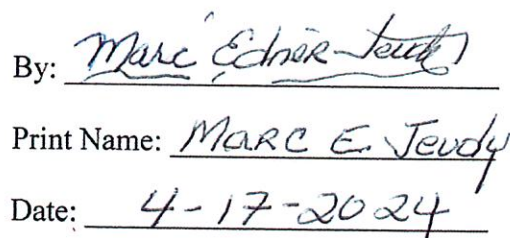 By: Marc Edner Jeudy
Print Name: MARC E. Jeudy
Date: 4-17-2024